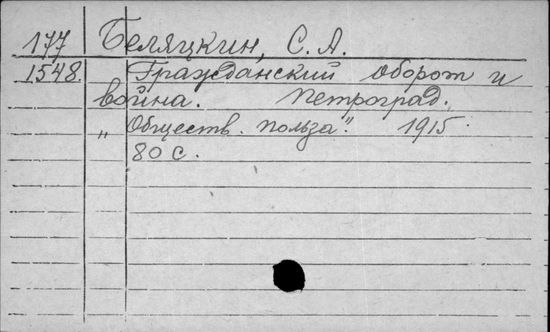 177 Беляцкин, С. А.
1548. Гражданский оборот и
война. Петроград.
„Обществ. польза". 1915.
80 с.